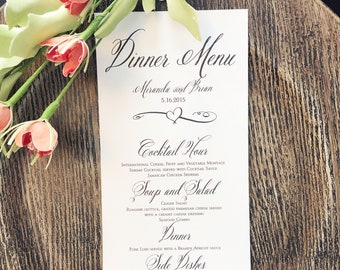 Dinner Menu
Miranda and Brian
5.16.2015
Cocktail Hour
International Cheese, Fruit and Vegetable Montage
Shrimp Cocktail served with Cocktail Sauce
Jamaican Chicken Skewers
Soup and Salad
Caesar Salad
Romaine lettuce, grated parmesan cheese served
with a creamy caesar dressing
Seafood Gumbo
Dinner
Pork Loin served with a Brandy Apricot sauce
Side Dishes